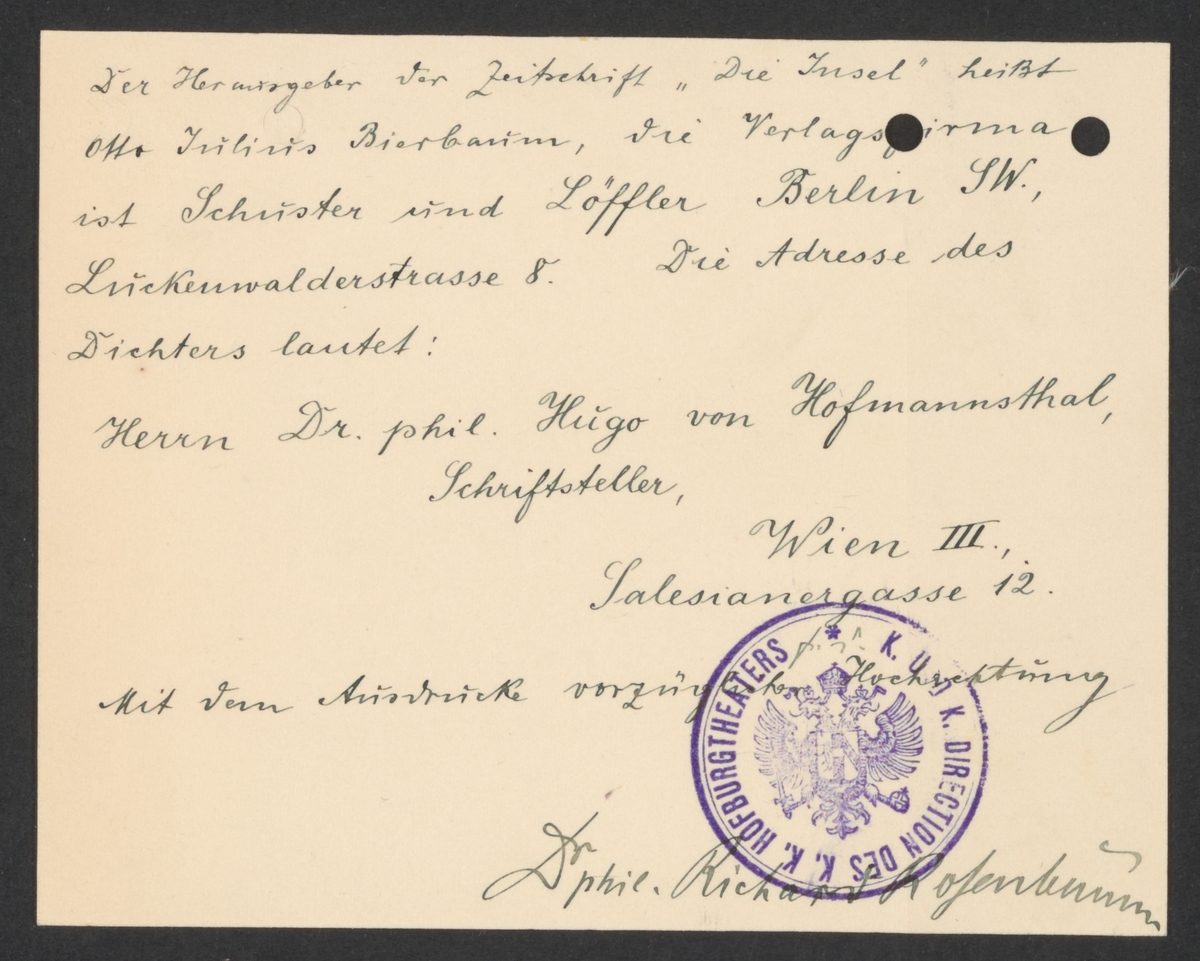 Der Herausgeber der Zeitschrift „Die Insel" heißt
Otto Julius Bierbaum, die Verlagsfirma
ist Schuster und Löffler Berlin SW.,
Luckenwalderstrasse 8. Die Adresse des
Dichters lautet:
Herrn Dr. phil. Hugo von Hofmannsthal,
Schriftsteller,
Wien III.,
Salesianergasse 12.
Mit dem Ausdrucke vorzüglicher Hochachtung
K. UND K. DIRECTION DES K. K. HOFBURGTHEATERS *
Dr phil. Richard Rosenbaum